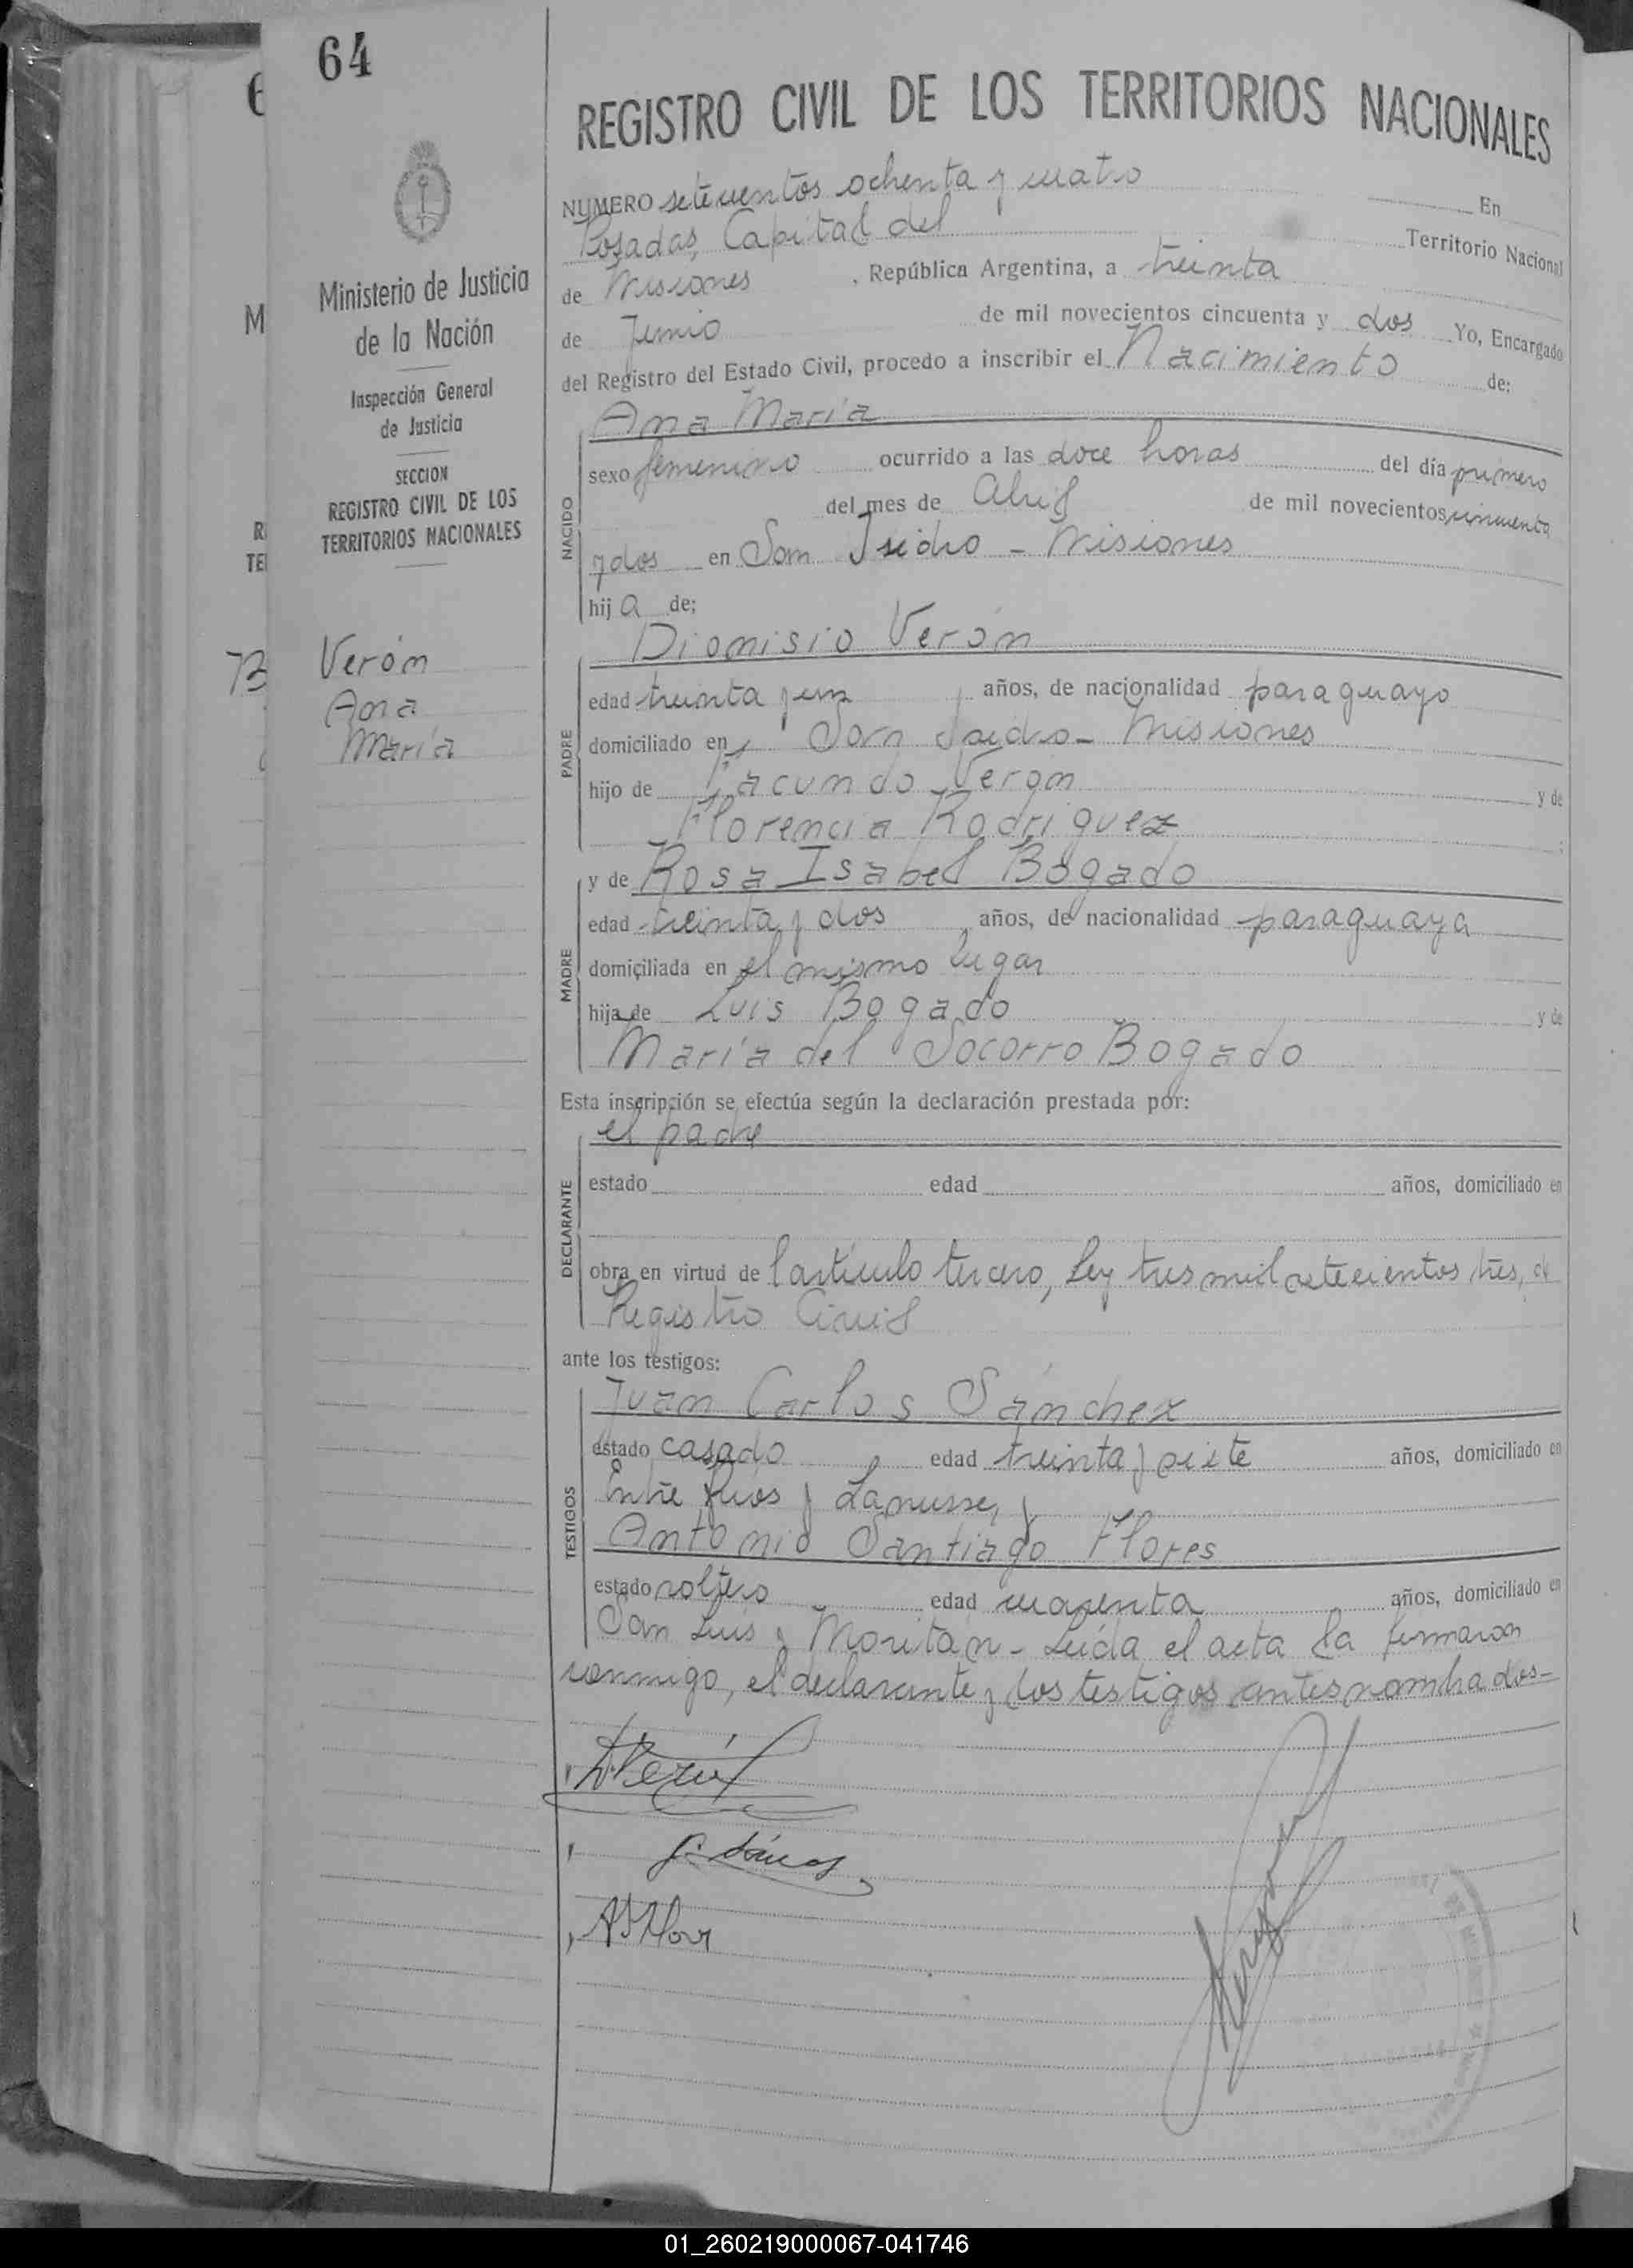 64
REGISTRO CIVIL DE LOS TERRITORIOS NACIONALES
Ministerio de Justicia
de la Nación
Inspección General
de Justicia
SECCION
REGISTRO CIVIL DE LOS
TERRITORIOS NACIONALES
Verón
Ana
María
NUMERO setecientos ochenta y cuatro En
Posadas, Capital del Territorio Nacional
de Misiones, República Argentina, a treinta
de Junio de mil novecientos cincuenta y dos Yo, Encargado
del Registro del Estado Civil, procedo a inscribir el Nacimiento de:
NACIDO
Ana María
sexo femenino ocurrido a las doce horas del día primero
del mes de Abril de mil novecientos cincuenta
y dos en San Isidro - Misiones
hija de:
PADRE
Dionisio Verón
edad treinta y un años, de nacionalidad paraguayo
domiciliado en San Isidro - Misiones
hijo de Facundo Verón y de
Florencia Rodriguez
MADRE
y de Rosa Isabel Bogado
edad treinta y dos años, de nacionalidad paraguaya
domiciliada en el mismo lugar
hija de Luis Bogado y de
María del Socorro Bogado
Esta inscripción se efectúa según la declaración prestada por:
DECLARANTE
el padre
estado edad años, domiciliado en
obra en virtud de l artículo tercero, ley tres mil setecientos tres, de
Registro Civil
ante los testigos:
TESTIGOS
Juan Carlos Sánchez
estado casado edad treinta y siete años, domiciliado en
Entre Rios y Lanusse, y
Antonio Santiago Flores
estado soltero edad cuarenta años, domiciliado en
San Luis y Moritán - Leída el acta la firmaron
conmigo, el declarante y los testigos antes nombrados -
01_260219000067-041746